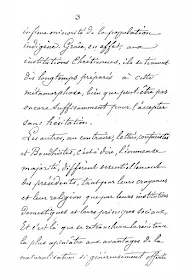 3
infime minorité de la population
indigène. Grâce, en effet, aux
institutions Chrétiennes, ils se trouvent
dès longtemps préparés à cette
métamorphose, bien que peut être pas
encore suffisamment pour l'accepter
sans hésitation.
Les autres, au contraire, lettrés,
et Bouddhistes, c'est à dire, l'immense
majorité, diffèrent essentiellement
des précédents, tant par leur croyance
et leur religion que par leurs institutions
domestiques et leurs principes sociaux.
Et c'est là que se retranche la résistance
la plus opiniâtre aux avantages de la
naturalisation si généreusement offerte